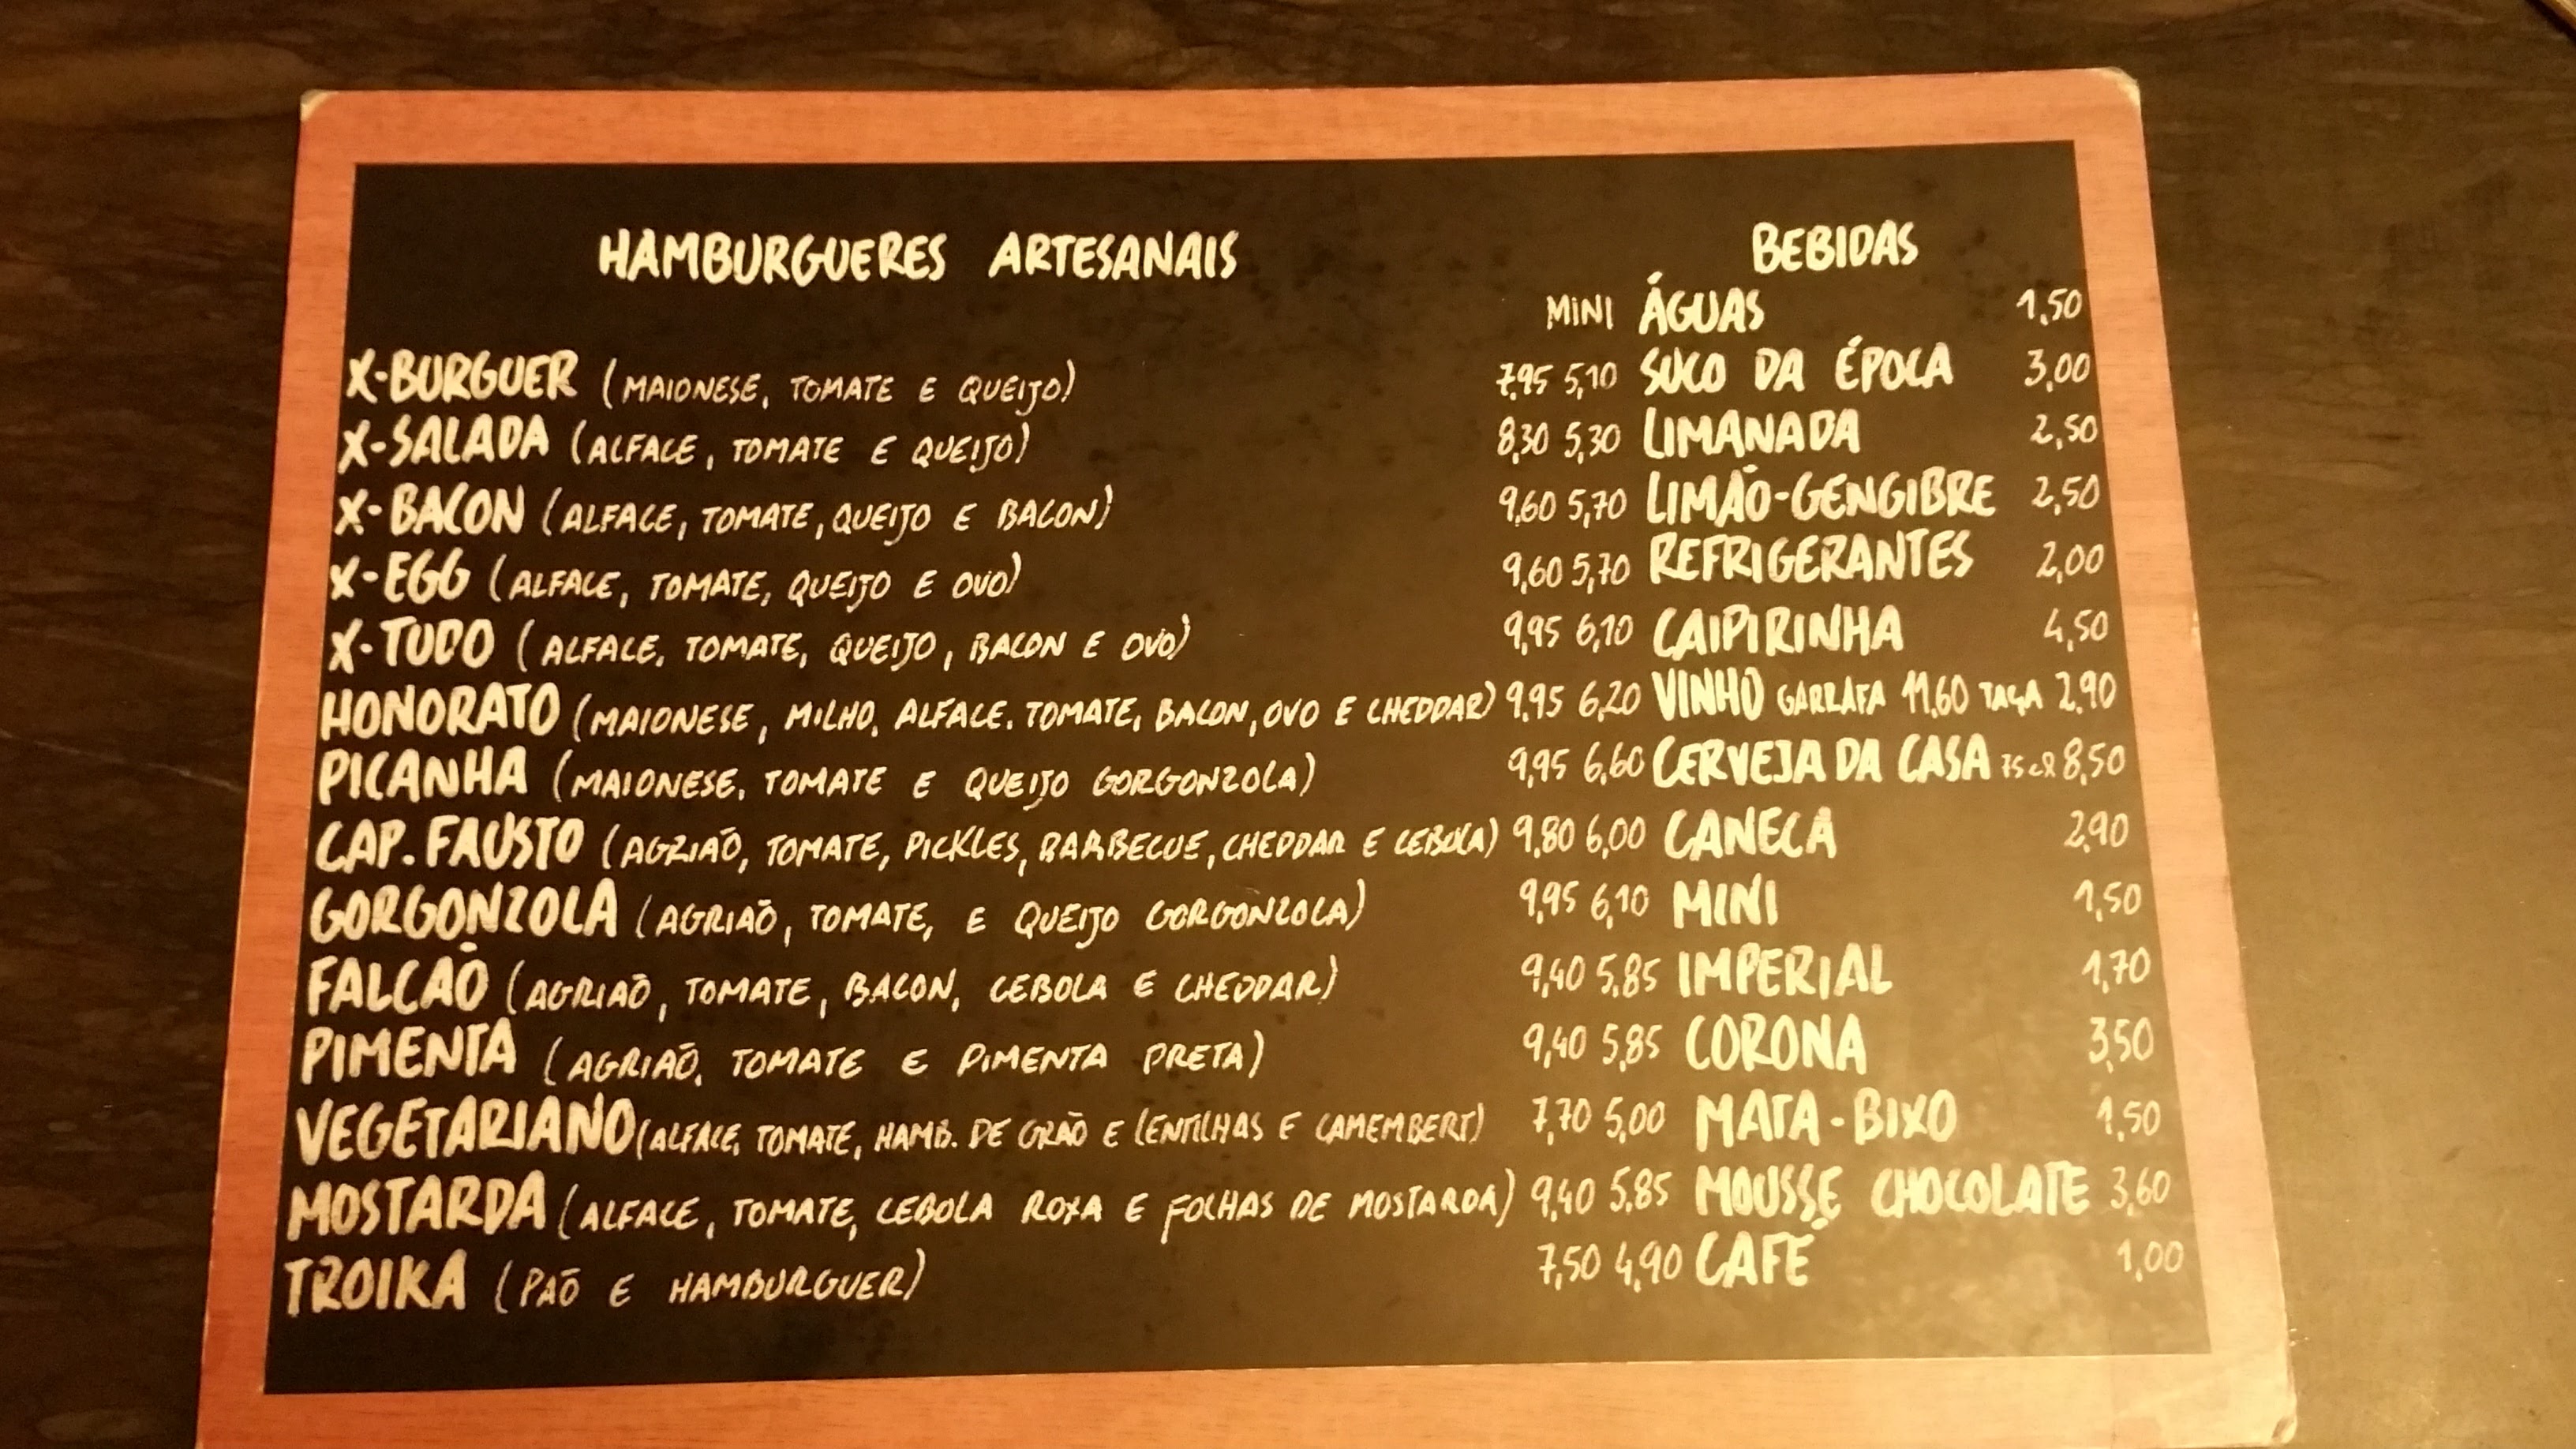 HAMBURGUERES ARTESANAIS
MINI
X-BURGUER (MAIONESE, TOMATE E QUEIJO) 7,95 5,10
X-SALADA (ALFACE, TOMATE E QUEIJO) 8,30 5,30
X-BACON (ALFACE, TOMATE, QUEIJO E BACON) 9,60 5,70
X-EGG (ALFACE, TOMATE, QUEIJO E OVO) 9,60 5,70
X-TUDO (ALFACE, TOMATE, QUEIJO, BACON E OVO) 9,95 6,10
HONORATO (MAIONESE, MILHO, ALFACE, TOMATE, BACON, OVO E CHEDDAR) 9,95 6,20
PICANHA (MAIONESE, TOMATE E QUEIJO GORGONZOLA) 9,95 6,60
CAP. FAUSTO (AGRIÃO, TOMATE, PICKLES, BARBECUE, CHEDDAR E CEBOLA) 9,80 6,00
GORGONZOLA (AGRIÃO, TOMATE, E QUEIJO GORGONZOLA) 9,95 6,10
FALCÃO (AGRIÃO, TOMATE, BACON, CEBOLA E CHEDDAR) 9,40 5,85
PIMENTA (AGRIÃO, TOMATE E PIMENTA PRETA) 9,40 5,85
VEGETARIANO (ALFACE, TOMATE, HAMB. DE GRÃO E LENTILHAS E CAMEMBERT) 7,70 5,00
MOSTARDA (ALFACE, TOMATE, CEBOLA ROXA E FOLHAS DE MOSTARDA) 9,40 5,85
TROIKA (PÃO E HAMBURGUER) 7,50 4,90
BEBIDAS
ÁGUAS 1,50
SUCO DA ÉPOCA 3,00
LIMANADA 2,50
LIMÃO-GENGIBRE 2,50
REFRIGERANTES 2,00
CAIPIRINHA 4,50
VINHO GARRAFA 11,60 TAÇA 2,90
CERVEJA DA CASA 75cl 8,50
CANECA 2,90
MINI 1,50
IMPERIAL 1,70
CORONA 3,50
MATA-BIXO 1,50
MOUSSE CHOCOLATE 3,60
CAFÉ 1,00